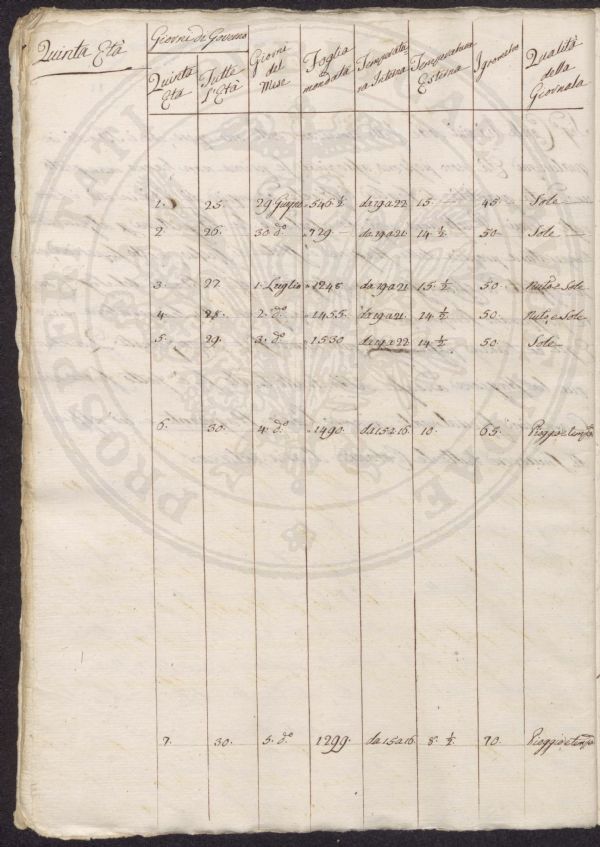 Quinta Età
Giorni di Governo
Quinta Età
Tutte l'Età
Giorni del Mese
Foglia mondata
Temperatura Interna
Temperatura Esterna
Igrometro
Qualità della Giornata
1. 25. 29 Giugno 546 ½ da 19 a 22 15 — 45. Sole —
2 26. 30. d.º 729 — da 19 a 21. 14 ½ 50. Sole —
3 27. 1. Luglio 1248 da 19 a 21 15. ½ 50. Nuto e Sole
4. 28. 2. d.º 1455 da 19 a 21. 14 ½. 50. Nuto e Sole
5. 29. 3. d.º 1530 da 19 a 22 14 ½ 50. Sole —
6. 30. 4. d.º 1490. da 15 a 16. 10. 65. Pioggia e
7. 30. 5. d.º 1299. da 15 a 16. 8. ½. 70. Pioggia e
PROSPERITATI PUBLICAE